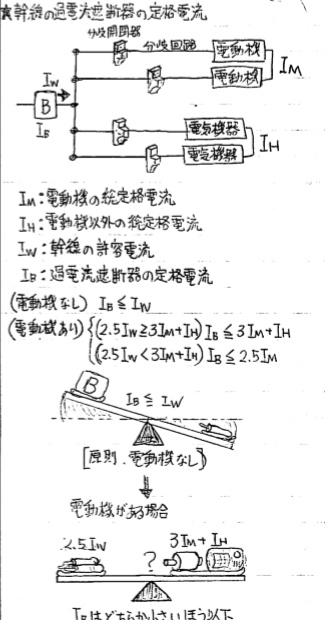 幹線の過電流遮断器の定格電流
分岐開閉器
分岐回路
電動機
電動機
IM
IW
B
IB
電気機器
電気機器
IH
IM:電動機の総定格電流
IH:電動機以外の総定格電流
IW:幹線の許容電流
IB:過電流遮断器の定格電流
(電動機なし) IB≦IW
(電動機あり) {(2.5IW≧3IM+IH) IB≦3IM+IH
(2.5IW<3IM+IH) IB≦2.5IM
B
IB≦IW
[原則.電動機なし]
電動機がある場合
2.5IW
?
3IM+IH
IBはどちらか小さいほう以下